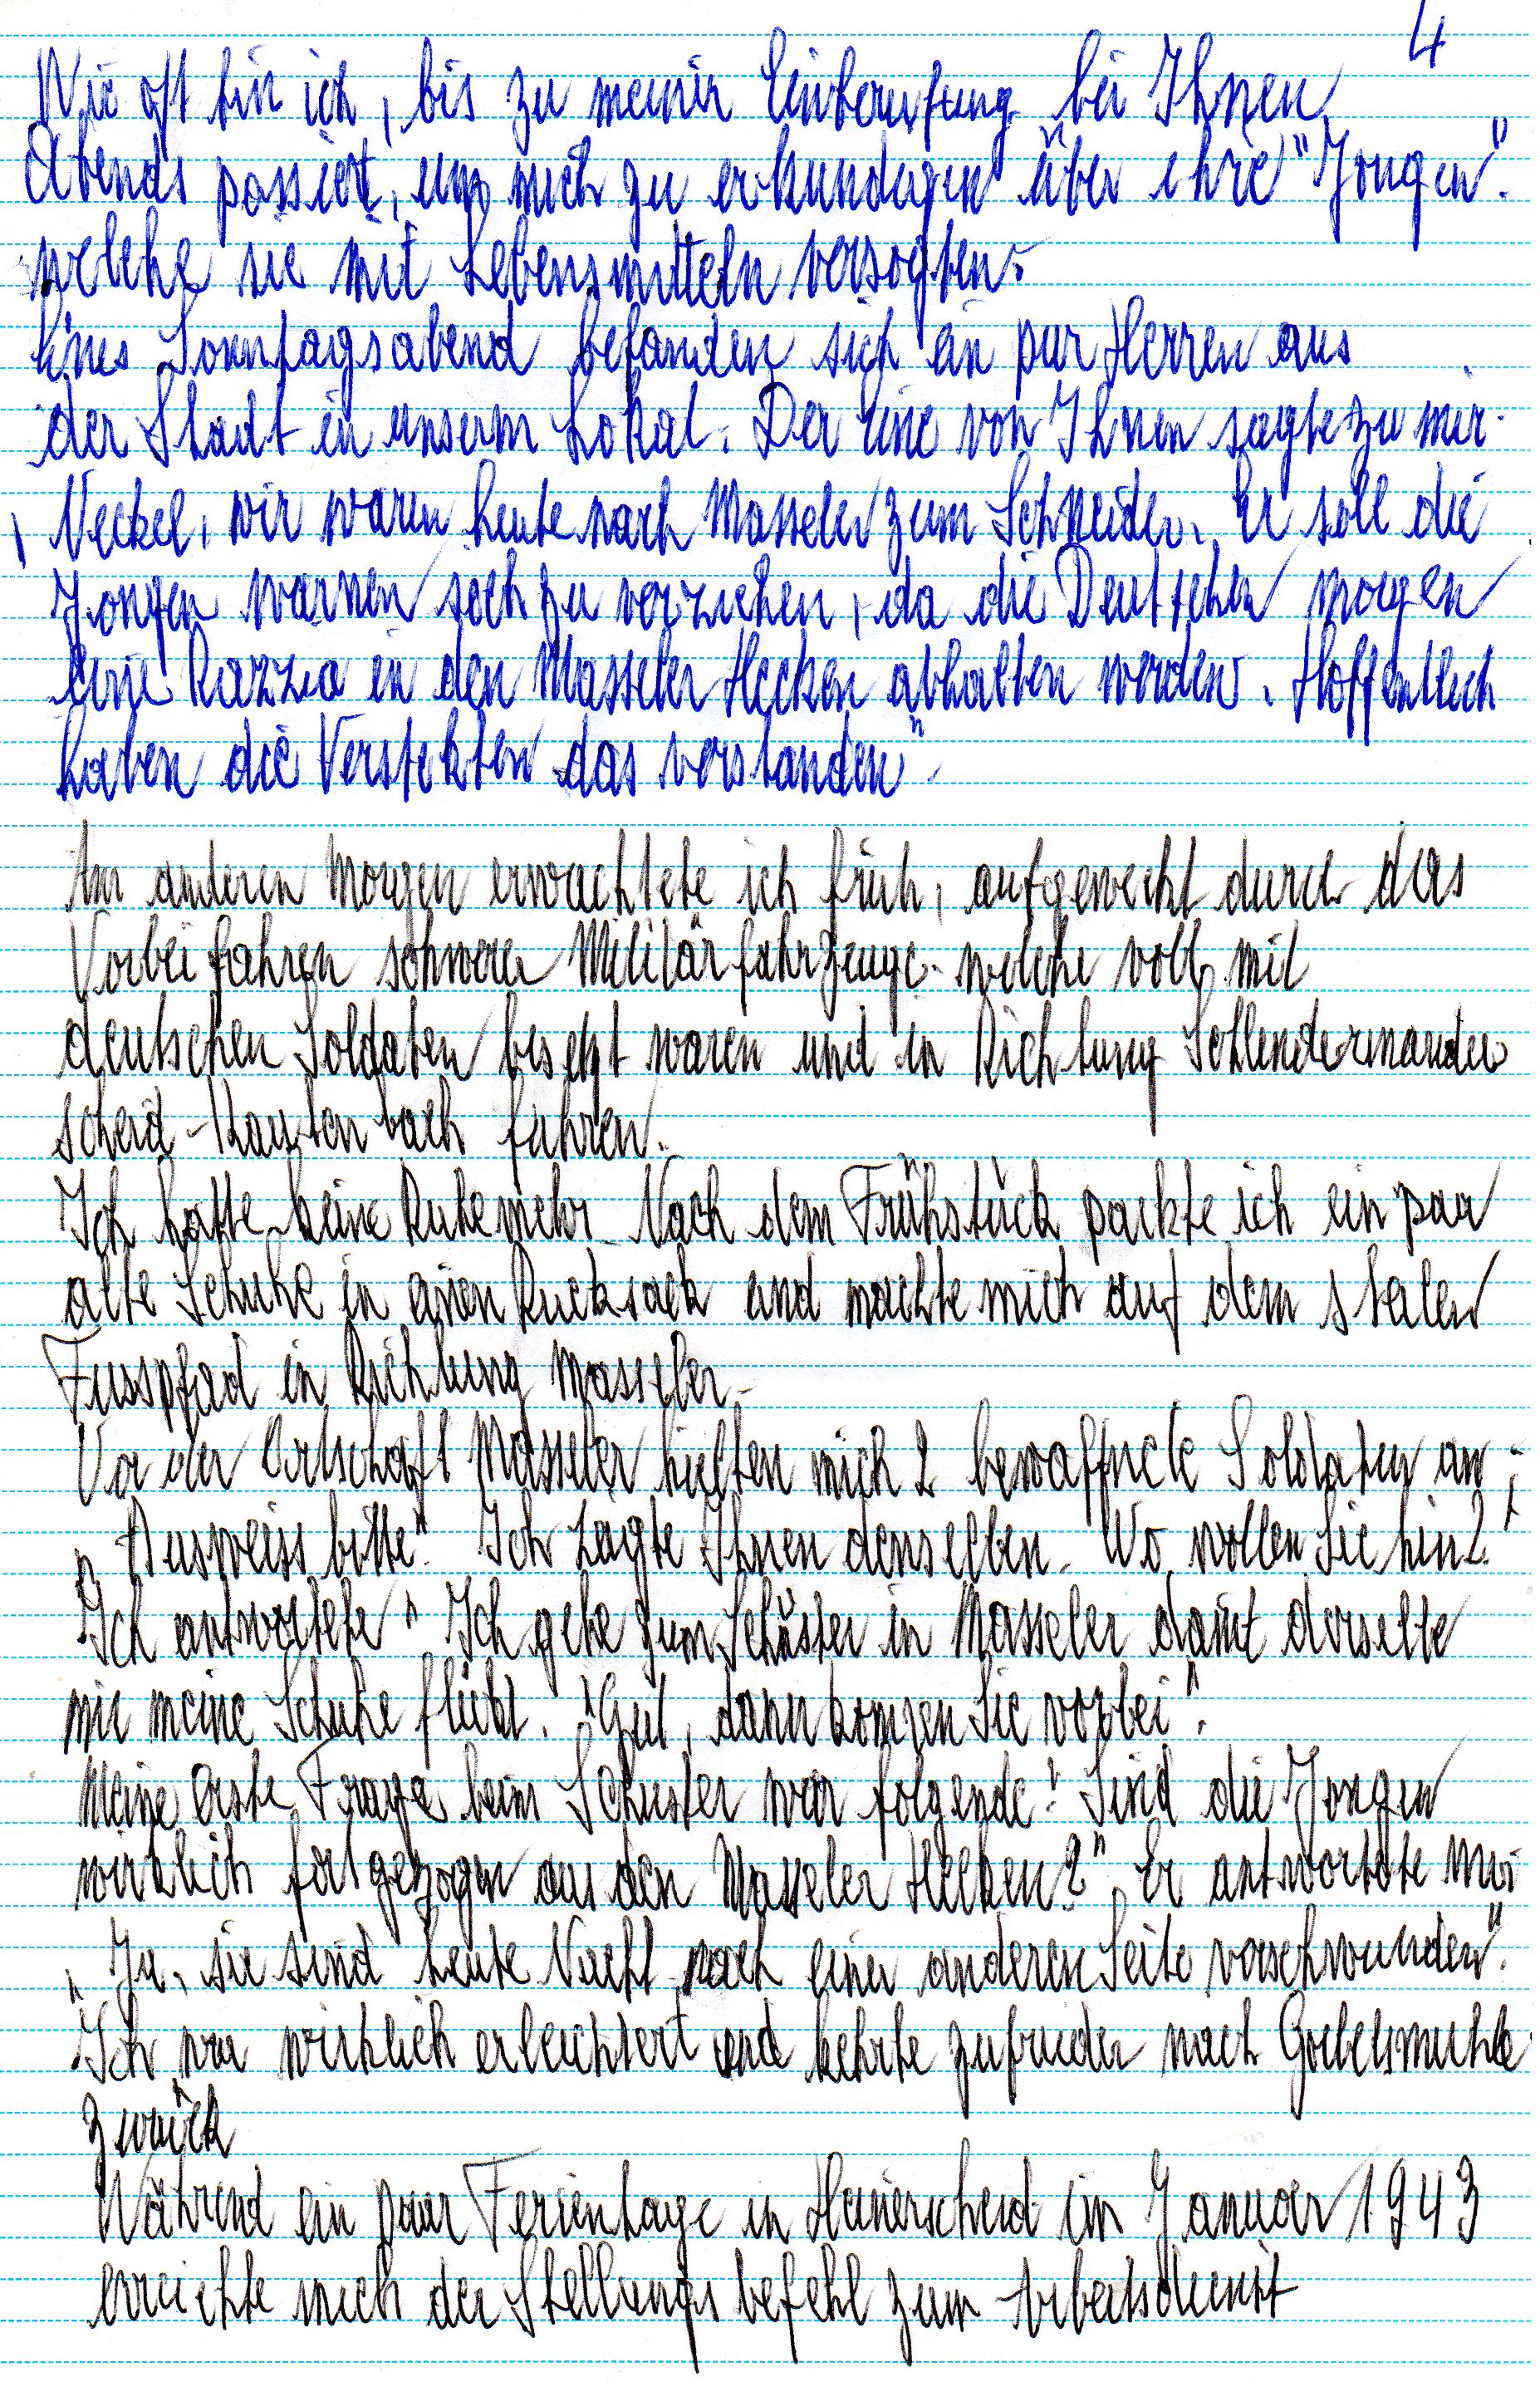 4
Wie oft bin ich, bis zu meiner Einberufung bei Ihnen
Abends passiert, um mich zu erkundigen über ihre "Jongen".
welche sie mit Lebensmitteln versogten.
Eines Sonntagsabend befanden sich ein par Herren aus
der Stadt in unserm Lokal. Der Eine von Ihnen sagte zu mir.
„Neckel, wir waren heute nach Masseler zum Schneider. Er soll die
Jongen warnen sich zu verziehen, da die Deutschen morgen
eine Razzia in den Masseler Hecken abhalten werden. Hoffentlich
haben die Verstekten das verstanden"
Am anderen Morgen erwachtete ich früh, aufgeweckt durch das
Vorbeifahren schwerer Militärfahrzeuge. welche voll mit
deutschen Soldaten besetzt waren und in Richtung Schlindermander
scheid - Kautenbach fuhren.
Ich hatte keine Ruhe mehr. Nach dem Frühstück packte ich ein paar
alte Schuhe in einen Rucksack und machte mich auf dem steilen
Fusspfad in Richtung Masseler.
Vor der Ortschaft Masseler hielten mich 2 bewaffnete Soldaten an:
„Ausweiss bitte" Ich zeigte Ihnen denselben. Wo wollen Sie hin?"
Ich antwortete "Ich gehe zum Schuster in Masseler damit derselbe
mir meine Schuhe flickt. "Gut, dann kommen Sie vorbei".
Meine erste Frage beim Schuster war folgende: Sind die Jongen
wirklich fortgezogen aus den Masseler Hecken?" Er antwortete mir
„Ja, sie sind heute Nacht nach einer anderen Seite verschwunden".
Ich war wirklich erleichtert und kehrte zufrieden nach Goebelsmuhle
zurück
Während ein paar Ferientage in Heinerscheid im Januar 1943
erreichte mich der Stellungsbefehl zum Arbeitsdienst